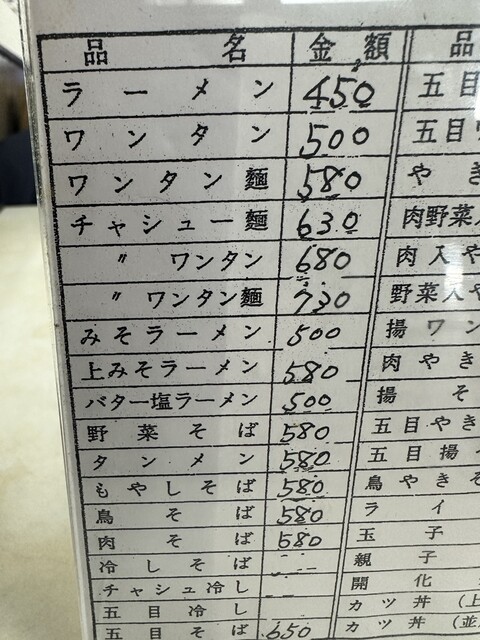 品名 金額 品
ラーメン 450 五目
ワンタン 500 五目
ワンタン麺 580 やき
チャシュー麺 630 肉野菜入
〃ワンタン 680 肉入や
〃ワンタン麺 730 野菜入や
みそラーメン 500 揚ワン
上みそラーメン 580 肉やき
バター塩ラーメン 500 揚そ
野菜そば 580 五目やき
タンメン 580 五目揚
もやしそば 580 鳥やきそ
鳥そば 580 ライ
肉そば 580 玉子
冷しそば 親子
チャシュ冷し 開化
五目冷し カツ丼(上
五目そば 650 カツ丼(並